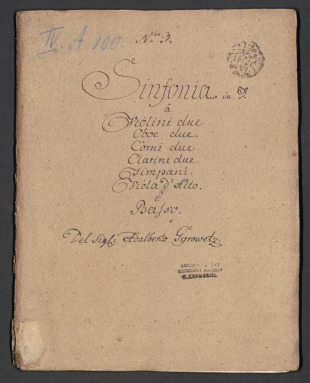 IV. A 100
No 3.
Sinfonia in
à
Violini due
Oboe due.
Corni due.
Clarini due.
Timpani.
Viola d'Alto.
e
Basso.
Del Sigr. Adalberto Gyrowetz